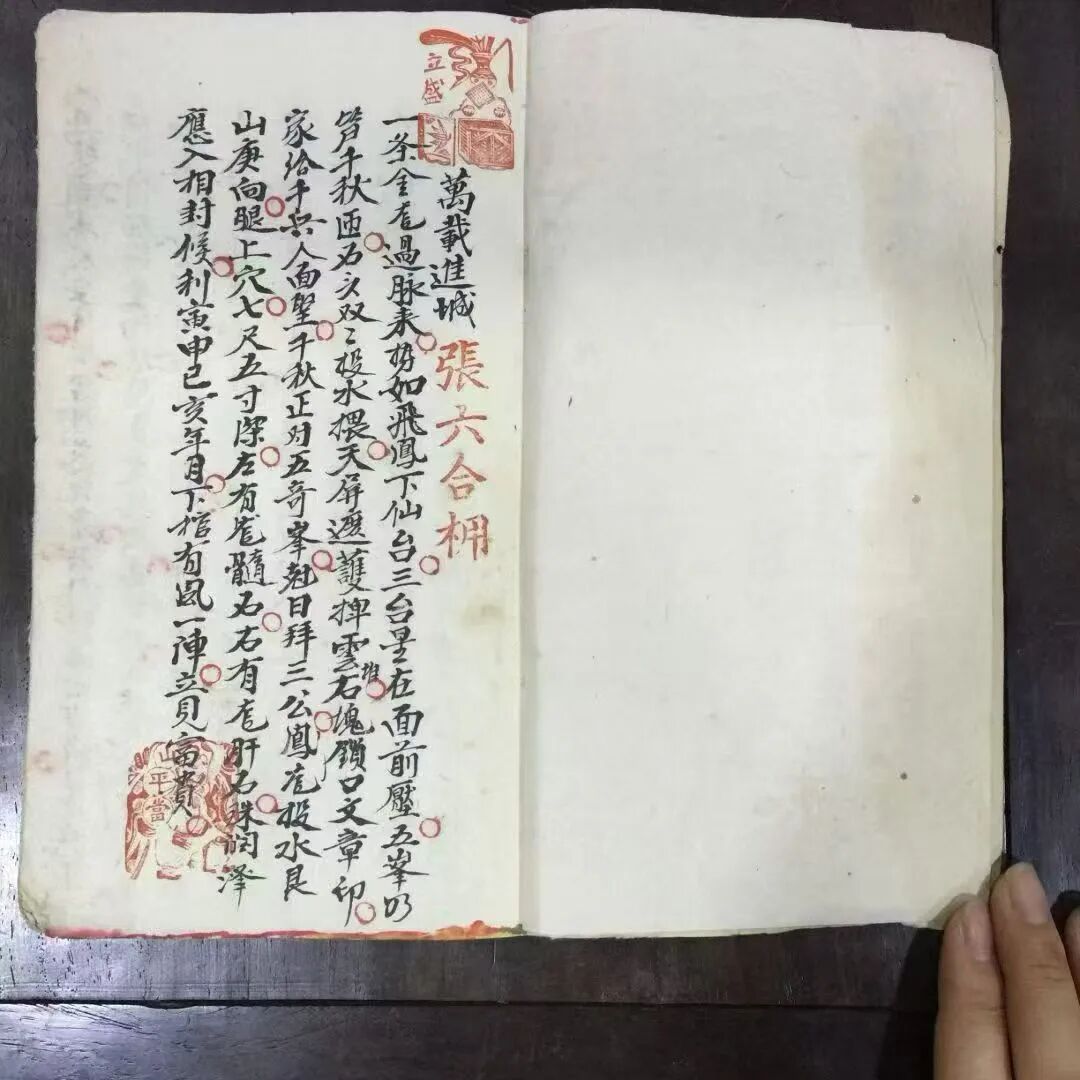 立盛
萬載進城 張六合
一条金龙過脉来势如飛鳳下仙台三台星在面前壓五峯
千秋西石头双〻投水 天屏遮護捍雲堆石塊鎖口文章印
家给千兵人面聖千秋正对五奇峯 日拜三公鳳龙投水艮
山庚向腿上穴七尺五寸深左有龙髓石右有龙肝石珠润澤
應入相封候利寅申已亥年月下棺有風一陣立見富貴
山
平
當